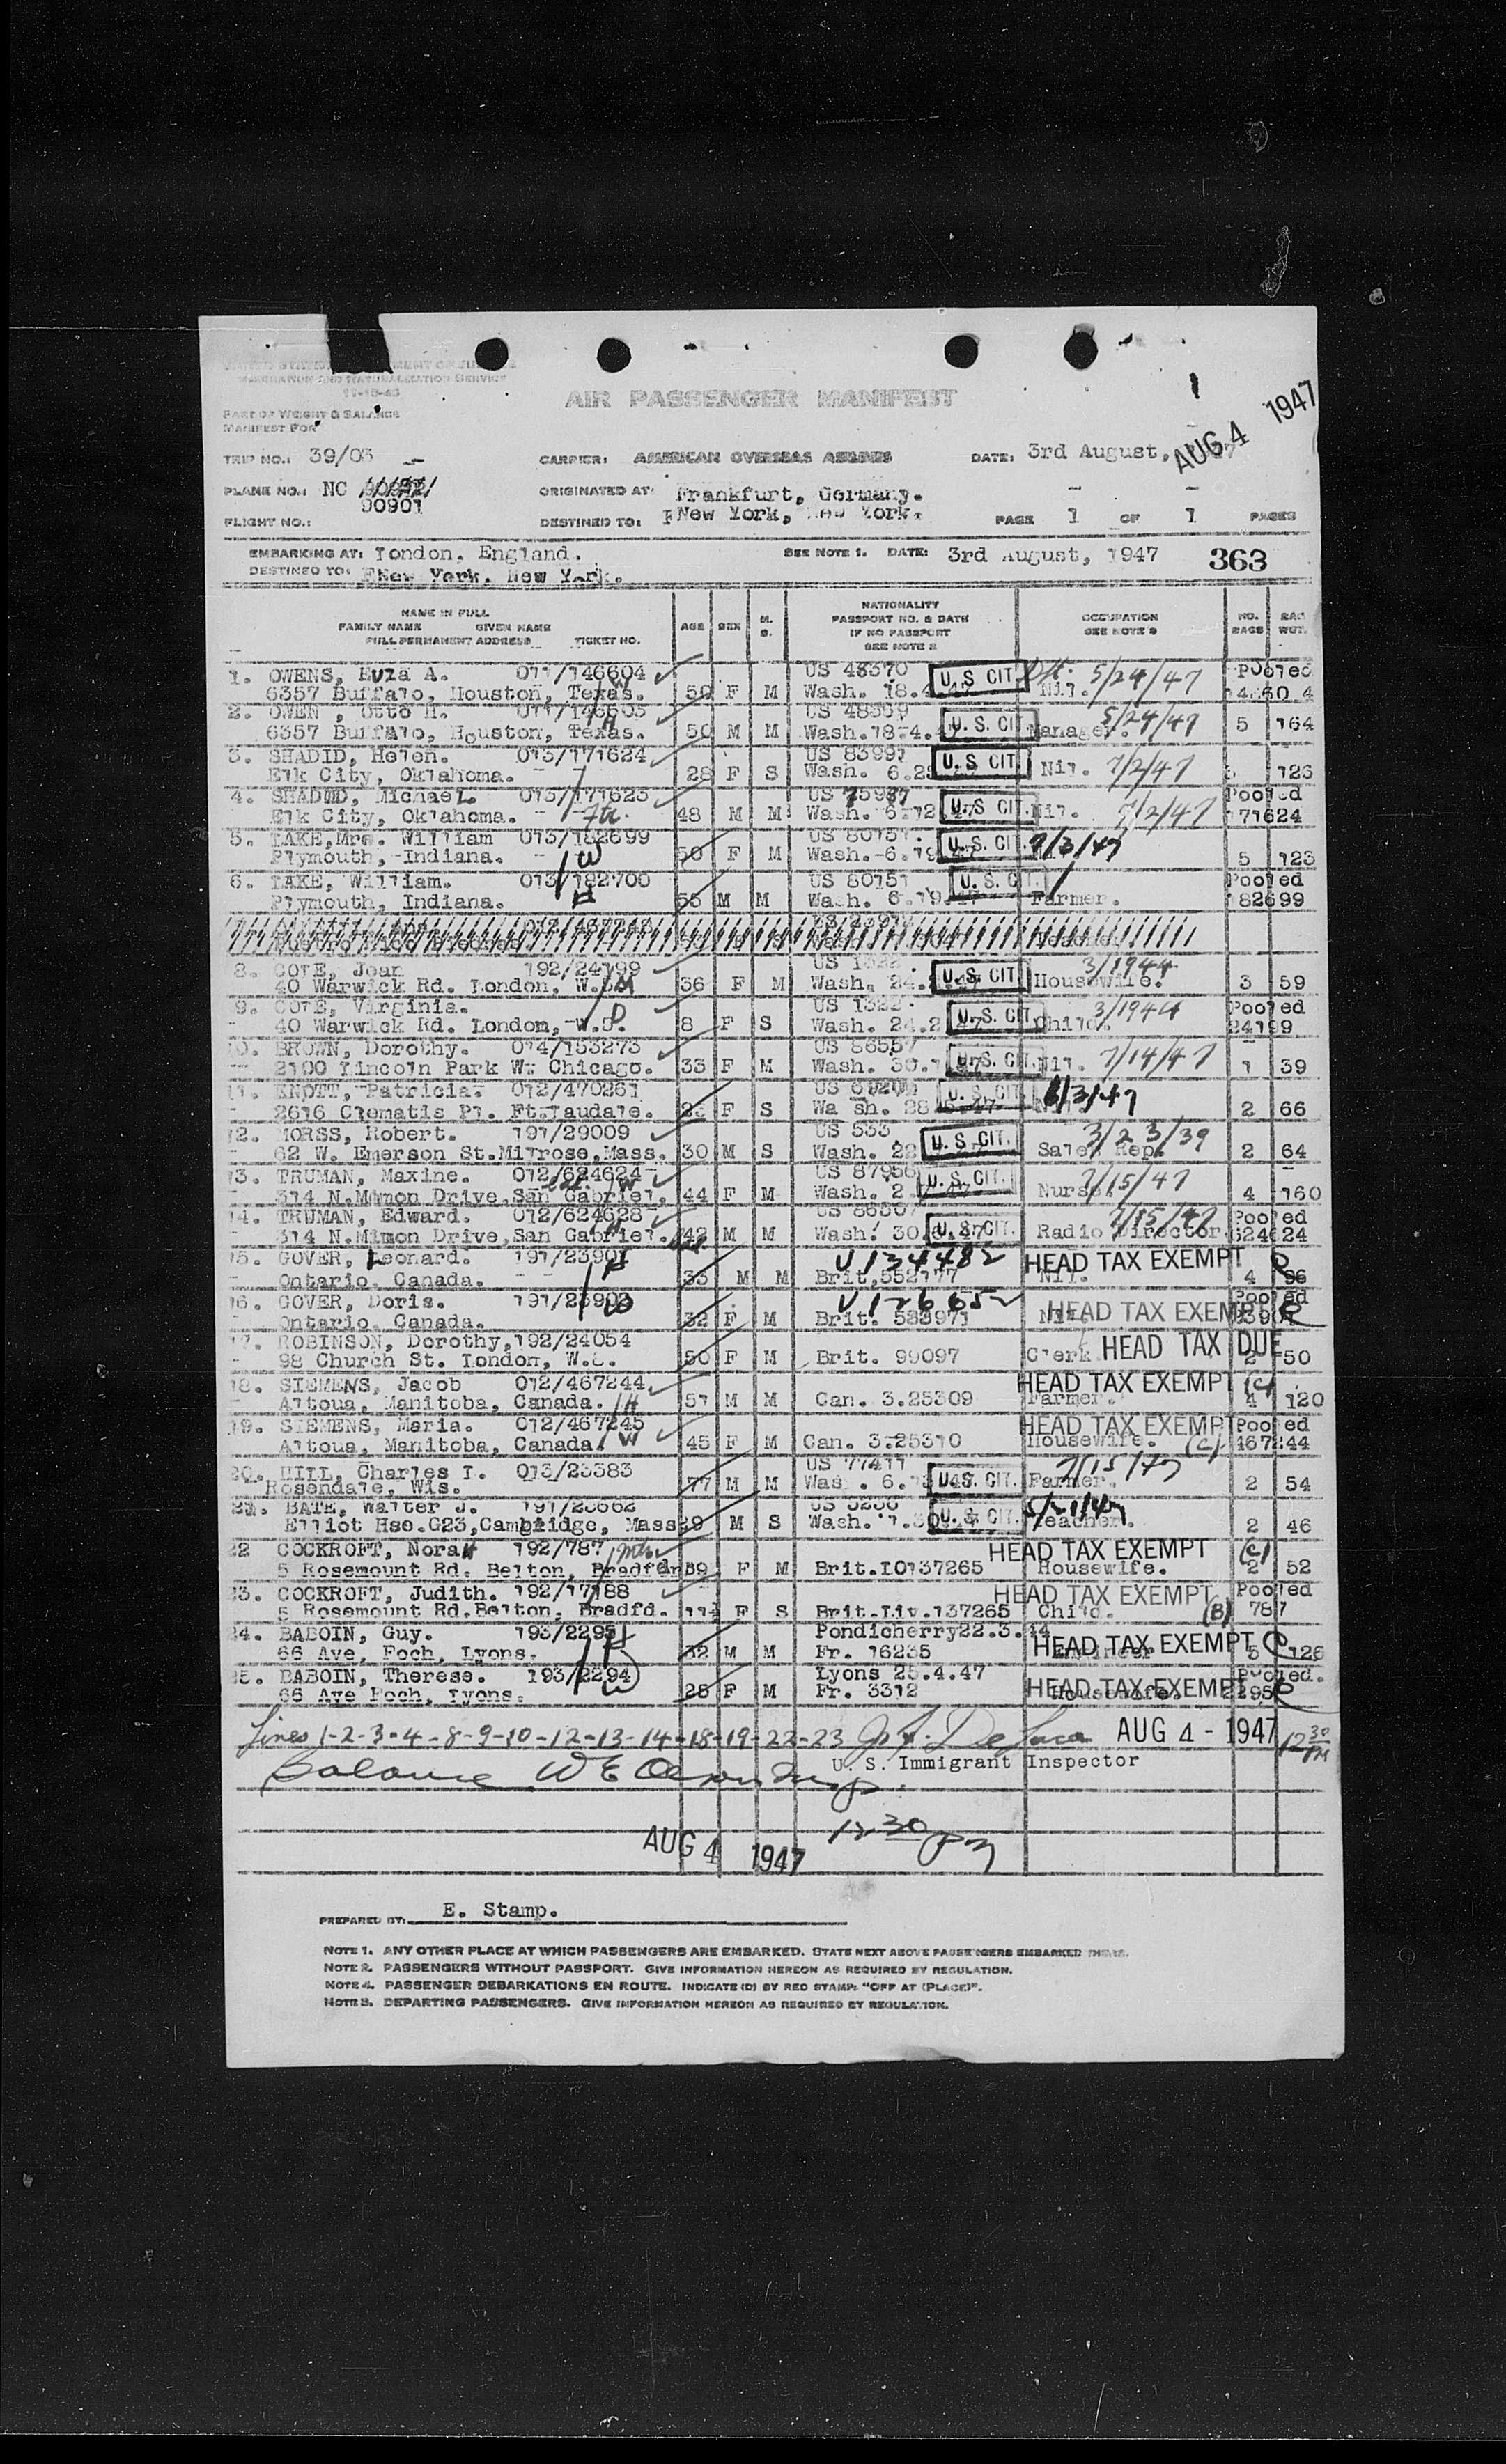 IMMIGRATION AND NATURALIZATION SERVICE
11-15-43
AIR PASSENGER MANIFEST
PART OF WEIGHT & BALANCE
MANIFEST FOR
AUG 4 1947
TRIP NO.: 39/03
CARRIER: AMERICAN OVERSEAS AIRLINES
DATE: 3rd August,
PLANE NO.: NC
90901
ORIGINATED AT: Frankfurt, Germany.
FLIGHT NO.:
DESTINED TO: New York, New York.
PAGE 1 OF 1 PAGES
EMBARKING AT: London. England.
SEE NOTE 1. DATE: 3rd August, 1947 363
DESTINED TO: New York. New York.
NAME IN FULL
FAMILY NAME GIVEN NAME
FULL PERMANENT ADDRESS TICKET NO.
AGE SEX M. S.
NATIONALITY
PASSPORT NO. & DATE
IF NO PASSPORT
SEE NOTE 2
OCCUPATION
NO. BAGS
BAG WGT.
1. OWENS, Eula A. 011/146604 US 48370 U.S CIT 5/24/47 Pooled
6357 Buffalo, Houston, Texas. 50 F M Wash. 18.4 Nil.
2. OWEN, Otto H. US U.S. CIT 5/24/47
6357 Buffalo, Houston, Texas. 50 M M Manager. 5 164
3. SHADID, Helen. 013/171624 US 83991 U.S CIT 7/2/47
Elk City, Oklahoma. 28 F S Wash. Nil.
4. Michael. 013/171625 US U.S CIT 7/2/47 Pooled
Elk City, Oklahoma. 48 M M Nil. 171624
5. LAKE, Mrs. William 013/182699 US 80151. U.S. CIT.
Plymouth, Indiana. 50 F M Wash. 6.19 5 123
6. LAKE, William. 013/182700 US 80151 U.S. CIT Pooled
Plymouth, Indiana. 55 M M Wash. 6.19.47 Farmer. 182699
8. COLE, Joan 192/24199 US 1322. U.S. CIT 3/1944
40 Warwick Rd. London, W.5. 36 F M Wash. 24. Housewife. 3 59
9. Virginia. US 1322. U.S. CIT 3/1944 Pooled
40 Warwick Rd. London, W.5. 8 F S Wash. 24.2 Child. 24199
10. BROWN, Dorothy. 014/153273 US 86557 U.S. CIT. 7/14/47
2100 Lincoln Park W. Chicago. 33 F M Wash. 30. Nil. 1 39
11. KNOTT, Patricia. 012/470261 US U.S. CIT.
2616 Clematis Pl. Ft.Laudale. F S Wa sh. 28 2 66
12. MORSS, Robert. 191/29009 US 533 U.S CIT. 3/23/39
62 W. Emerson St.Milrose,Mass. 30 M S Wash. 22 Sales Rep. 2 64
13. TRUMAN, Maxine. 012/624624 US 87956 U.S. CIT. 7/15/47
314 N. Drive,San Gabriel, 44 F M Wash. 2. Nurse. 4 160
14. TRUMAN, Edward. 012/624628 US U.S. CIT. 7/15/47 Pooled
314 N. Drive,San Gabriel. 42 M M Wash. 30. Radio Director. 624624
15. GOVER, Leonard. 191/23901 V 134482 HEAD TAX EXEMPT
Ontario. Canada. 33 M M Brit.552177 Nil. 4 96
16. GOVER, Doris. 191/23902 V 126652 HEAD TAX EXEMPT Pooled
Ontario. Canada. 32 F M Brit. 583971
17. ROBINSON, Dorothy, 192/24054 HEAD TAX DUE
98 Church St. London, 50 F M Brit. 99097 Clerk 2 50
18. SIEMENS, Jacob 012/467244 HEAD TAX EXEMPT (C)
Altoua, Manitoba, Canada. 51 M M Can. 3.25309 Farmer. 4 120
19. SIEMENS, Maria. 012/467245 HEAD TAX EXEMPT Pooled
Altoua, Manitoba, Canada. 45 F M Can. 3.25310 Housewife. (C) 467244
20. HILL, Charles L. 013/23383 US 77411 U.S. CIT. 7/15/47
Rosendale, Wis. 77 M M Farmer. 2 54
21. BATE, Walter J. US U.S. CIT.
Elliot Hse.G23,Cambridge, Mass 29 M S Wash. Teacher. 2 46
22 COCKROFT, Nora 192/787 HEAD TAX EXEMPT (C)
5 Rosemount Rd. Belton, 39 F M Brit.LO137265 Housewife. 2 52
23. COCKROFT, Judith. 192/17188 HEAD TAX EXEMPT Pooled
5 Rosemount Rd.Belton. Bradfd. F S Brit.Liv.137265 Child. (B) 787
24. BABOIN, Guy. Pondicherry22.3.44 HEAD TAX EXEMPT
66 Ave, Foch, Lyons. 32 M M Fr. 16235 5 126
25. BABOIN, Therese. 193/2294 Lyons 25.4.47 HEAD TAX EXEMPT Pooled.
66 Ave Foch, Lyons. 28 F M Fr. 3312 Housewife. 2295
Lines 1-2-3-4-8-9-10-12-13-14-18-19-22-23 AUG 4 - 1947 12 30 PM
Balance U. S. Immigrant Inspector
12 30 PM
AUG 4 1947
PREPARED BY: E. Stamp.
NOTE 1. ANY OTHER PLACE AT WHICH PASSENGERS ARE EMBARKED. STATE NEXT ABOVE PASSENGERS EMBARKED THERE.
NOTE 2. PASSENGERS WITHOUT PASSPORT. GIVE INFORMATION HEREON AS REQUIRED BY REGULATION.
NOTE 4. PASSENGER DEBARKATIONS EN ROUTE. INDICATE (D) BY RED STAMP: "OFF AT (PLACE)".
NOTE 3. DEPARTING PASSENGERS. GIVE INFORMATION HEREON AS REQUIRED BY REGULATION.